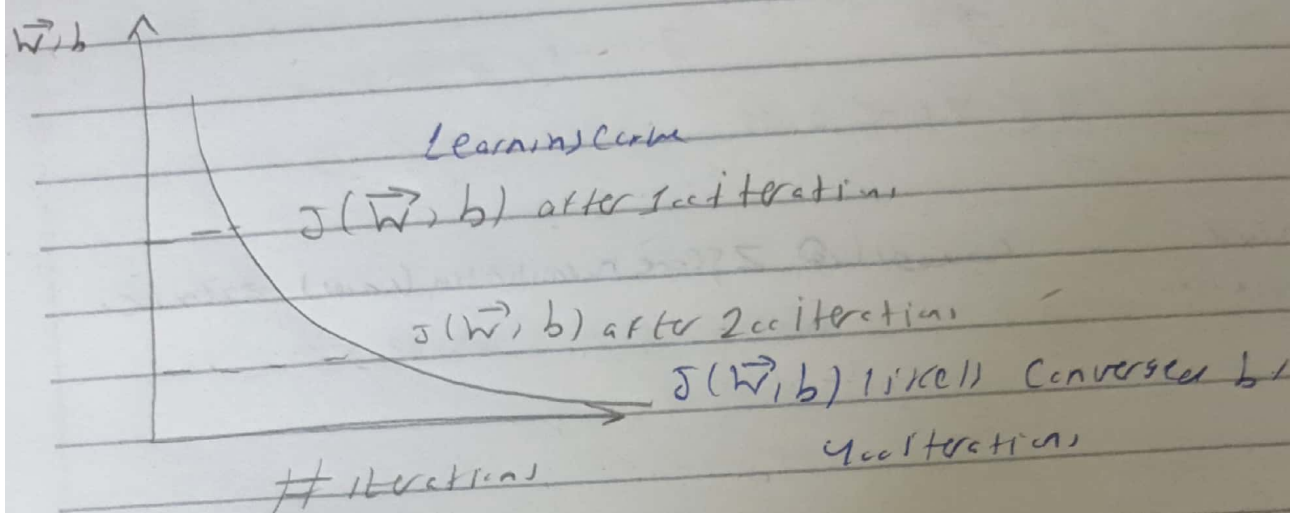 w⃗, b
Learning Curve
J(w⃗, b) after 100 iterations
J(w⃗, b) after 200 iterations
J(w⃗, b) likely Converged by
400 iterations
# iterations